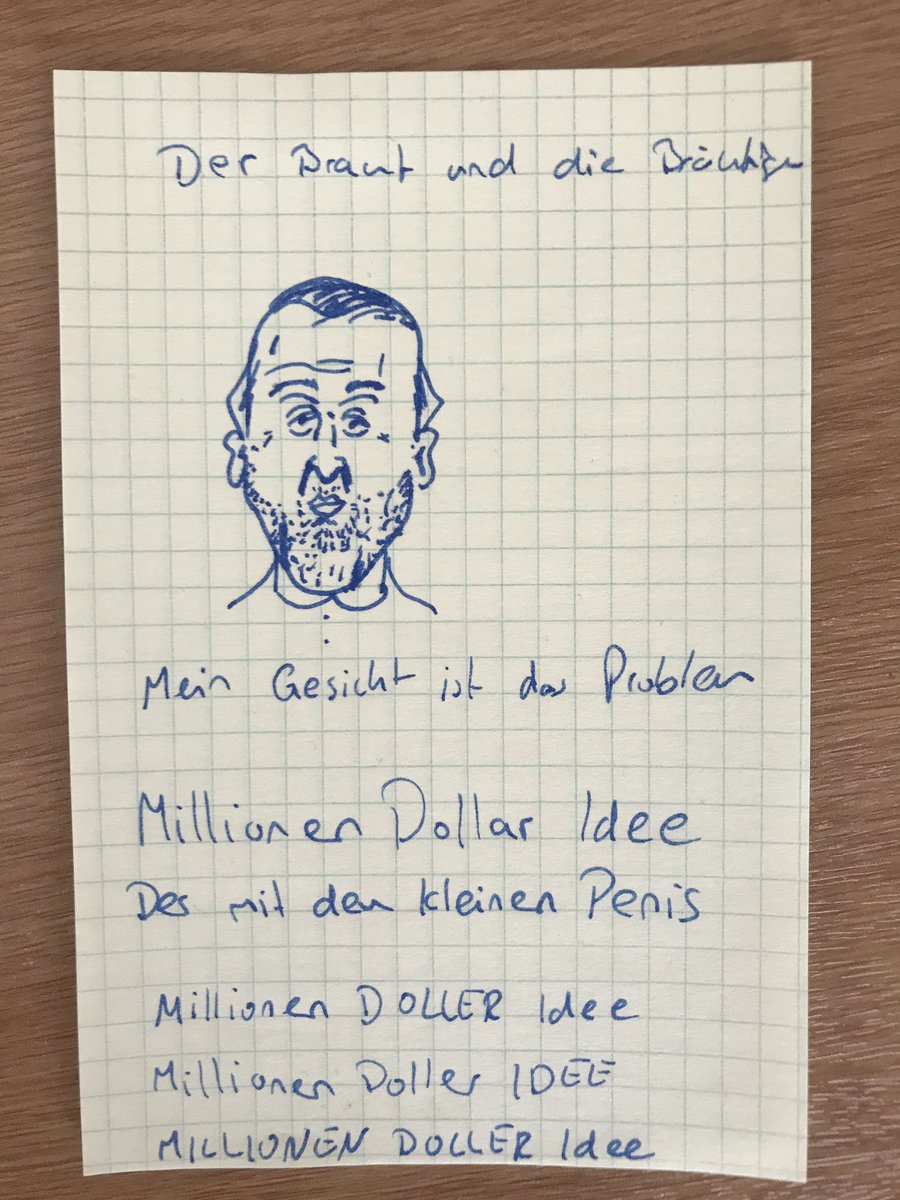 Der Braut und die Bräutigam
Mein Gesicht ist das Problem
Millionen Dollar Idee
Des mit dem kleinen Penis
Millionen DOLLER Idee
Millionen Doller IDEE
MILLIONEN DOLLER Idee